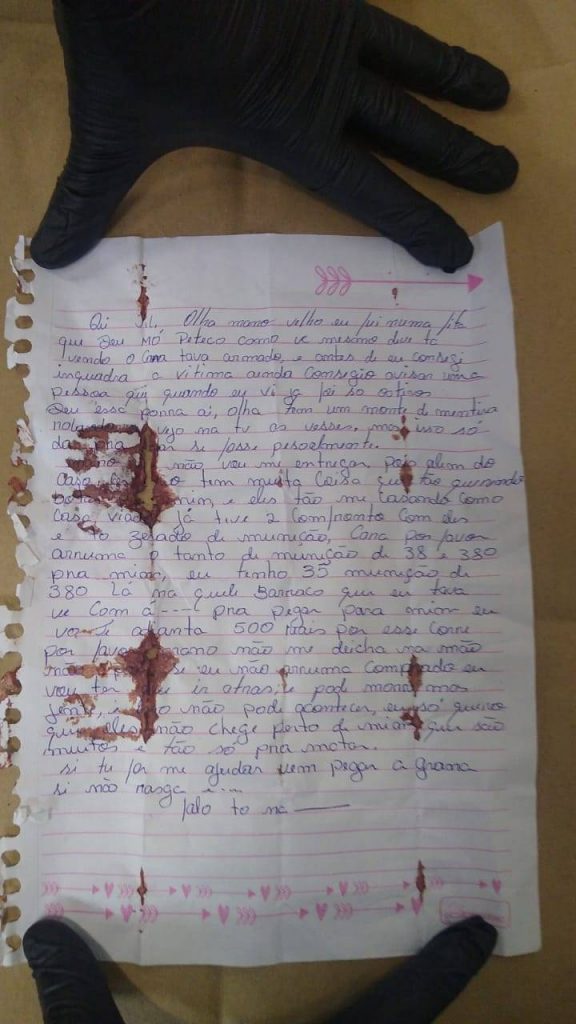 Oi Olha mano velho eu fui numa fita
que Deu Mó Peteco como vc mesmo deve ta
vendo o Cara tava armado, e antes de eu consegi
inquadra a vitima ainda Consegio avisar uma
pessoa que quando eu vi ja foi so os tiros
Deu essa porra ai, olha tem um monte de mentira
rolando vejo na tv as vesses, mas isso só
da pra se fosse pesoalmente.
mano não vou me entregar, pois alem do
Caso tem muita Coisa que tão querendo
botar mim, e eles tão me casando como
casa viado já tive 2 Comfronto Com eles
e to zerado de munição, Cara por favor
arruma o tanto de munição de 38 e 380
pra mim, eu tenho 35 munição de
380 lá na quele Barraco que eu tava
ve Com a---- pra pegar para mim eu
adianta 500 reais por esse Corre
por favor mano não me deicha na mão
não se eu não arruma Comprado eu
vou ter ir atras, e pode morre mas
jente, e não pode acontecer, eu só quero
que eles não chege perto de mim que são
muitos e tão só pra matar.
si tu for me ajudar vem pegar a grana
si não rasga
falo to na